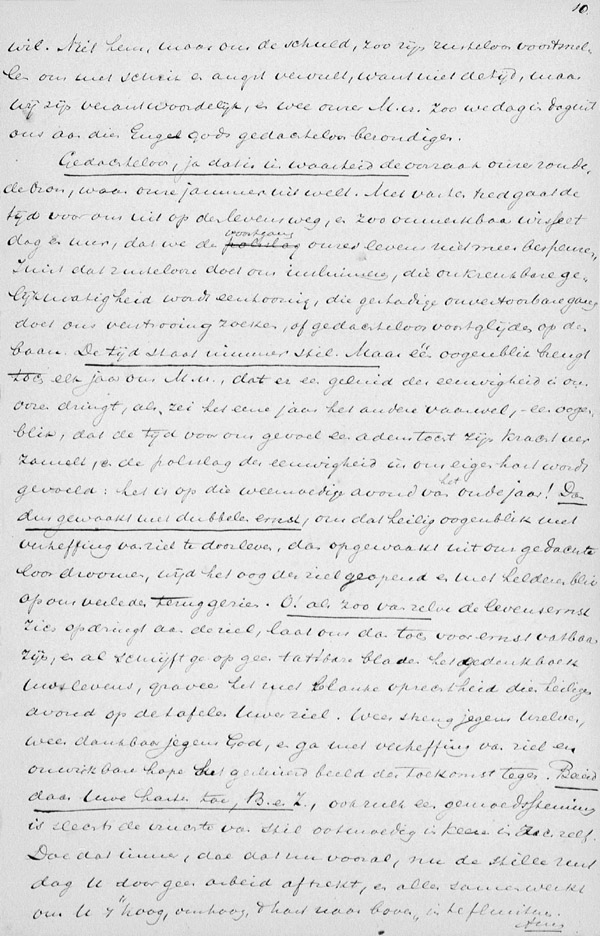 10
wil. Niet hem, maar ons de schuld, zoo zijn rusteloos voortsnel-
len ons met schrik en angst vervult, want niet de tijd, maar
wij zijn verantwoordelijk, en wee onzer M.H. zoo we dag in dag uit
ons aan dien Engel Gods gedachteloos bezondigen.
Gedachteloos, ja dat is in waarheid de oorzaak onzer zonde,
de bron, waar onze jammer uit welt. Met vasten tred gaat de
tijd voor ons uit op den levensweg, en zoo onmerkbaar wisselt
dag en uur, dat we de polsslag voortgang onzes levens niet meer bespeuren,
Juist dat rusteloos doet ons insluimeren, die onkreukbare ge-
lijkmatigheid wordt eentoonig, die gestadige onverstoorbare gang
doet ons verstrooiing zoeken, of gedachteloos voortglijden op de
baan. De tijd staat nimmer stil. Maar één oogenblik brengt
toch elk jaar ons M.H., dat er een geluid der eeuwigheid in onze
ooren dringt, als zei het eene jaar het andere vaarwel, - een oogen-
blik, dat de tijd voor ons gevoel een ademtocht zijn kracht ver
zamelt, en de polsslag der eeuwigheid in ons eigen hart wordt
gevoeld: het is op die weemoedige avond van het oude jaar! Dan
dus gewaakt met dubbelen ernst, om dat heilig oogenblik met
verheffing van ziel te doorleven, dan opgewaakt uit ons gedachte
loos droomen, wijd het oog der ziel geopend en met helderen blik
op ons verleden teruggezien. O! als zoo van zelve de levensernst
zich opdringt aan de ziel, laat ons dan toch voor ernst vatbaar
zijn, en al schrijft ge op geen tastbare bladen het gedenkboek
Uws levens, graveer het met blanke oprechtheid dien heiligen
avond op de tafelen Uwer ziel. Wees streng jegens Uzelven,
wees dankbaar jegens God, en ga met verheffing van ziel en
onwrikbare hope het gesluierd beeld der toekomst tegen. Bereid
daar Uwe harten toe, B. en Z., ook zulk een gemoedsstemming
is slechts de vrucht van stil ootmoedig inkeeren in zich zelf.
Doe dat immer, doe dat nu vooral, nu de stille rust
dag U door geen arbeid aftrekt, en alles samenwerkt
om U 't "hoog, omhoog, 't hart naar boven" in te fluisteren.
Amen